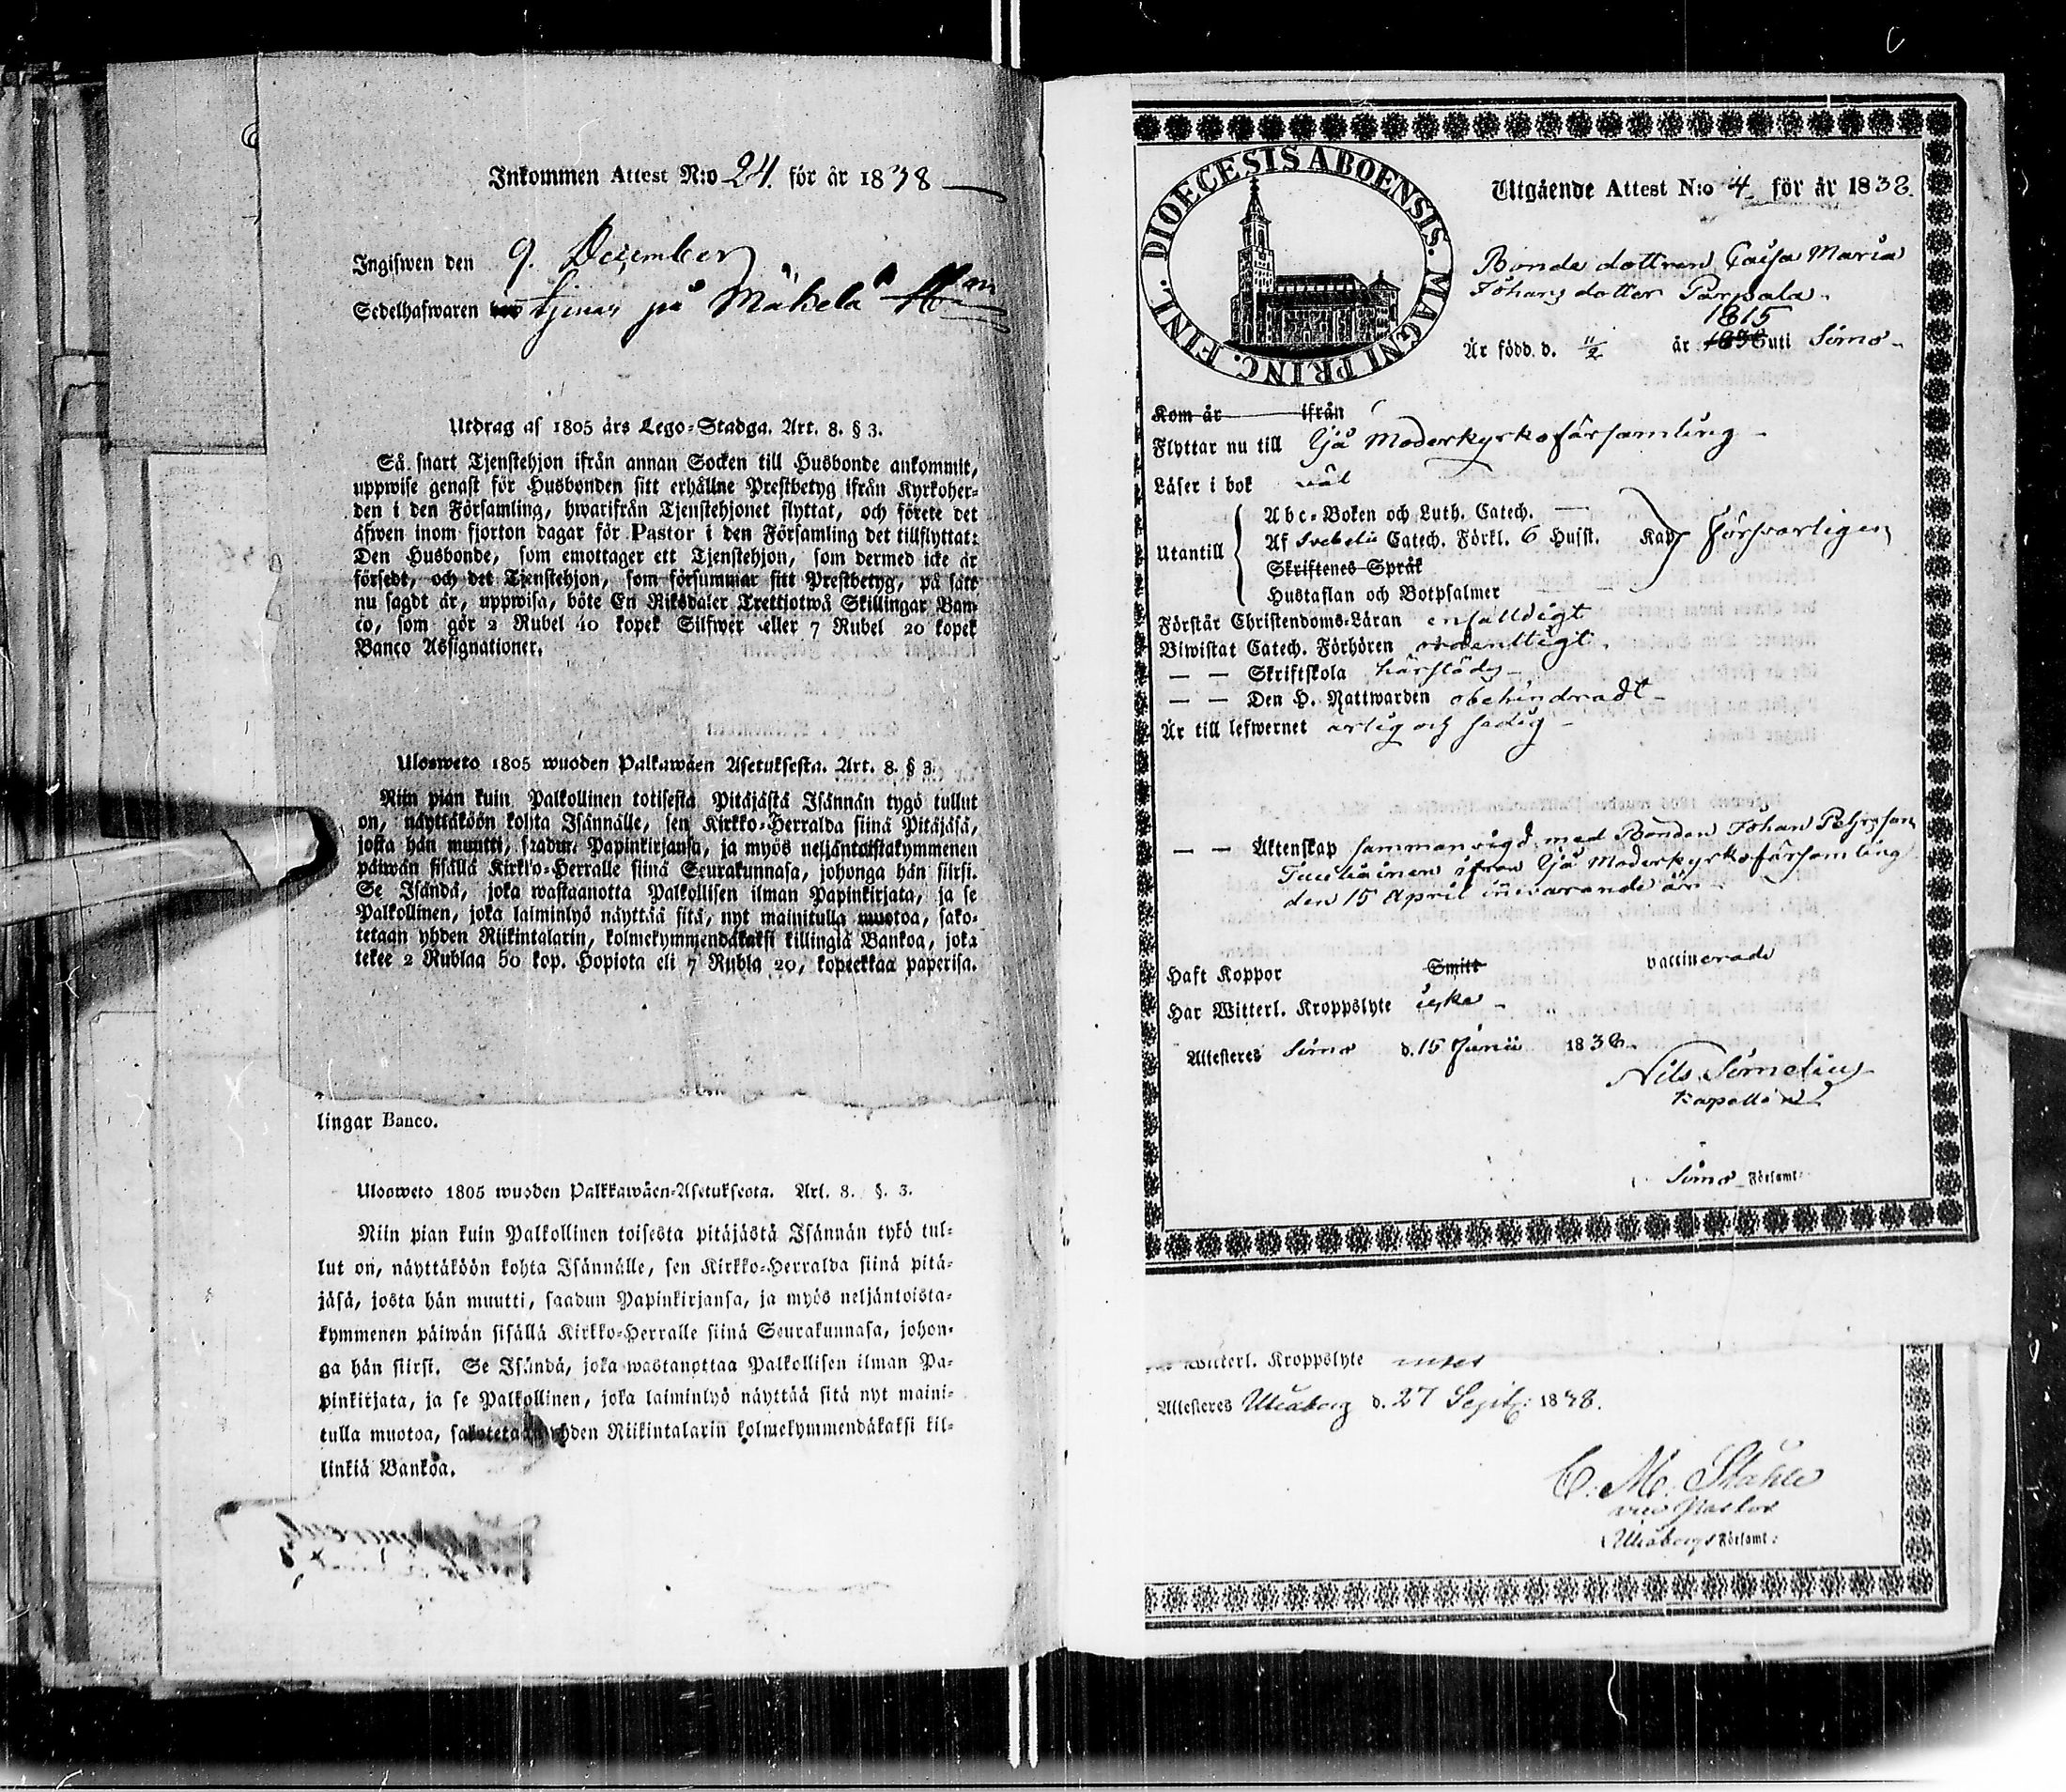 Inkommen Attest N:o 24. för år 1838
Ingifwen den 9. December
Sedelhafwaren tjenar på Mäkelä
Utdrag af 1805 års Lego-Stadga. Art. 8. § 3.
Så snart Tjenstehjon ifrån annan Socken till Husbonde ankommit,
uppwise genast för Husbonden sitt erhållne Prestbetyg ifrån Kyrkoher-
den i den Församling, hwarifrån Tjenstehjonet flyttat, och förete det
äfwen inom fjorton dagar för Pastor i den Församling det tillflyttat:
Den Husbonde, som emottager ett Tjenstehjon, som dermed icke är
försedt, och det Tjenstehjon, som försummar sitt Prestbetyg, på sätt
nu sagdt är, uppwisa, böte En Riksdaler Trettiotwå Skillingar Ban-
co, som gör 2 Rubel 40 kopek Silfwer eller 7 Rubel 20 kopek
Banco Assignationer.
Ulosweto 1805 wuoden Palkawäen Asetuksesta. Art. 8. § 3.
Niin pian kuin Palkollinen totisesta Pitäjästä Isännän tygö tullut
on, näyttäköön kohta Isännälle, sen Kirkko-Herralda siinä Pitäjäsä,
josta hän muutti, saadun Papinkirjansa, ja myös neljäntoistakymmenen
päiwän sisällä Kirkko-Herralle siinä Seurakunnasa, johonga hän siirsi.
Se Isändä, joka wastaanotta Palkollisen ilman Papinkirjata, ja se
Palkollinen, joka laiminlyö näyttää sitä, nyt mainitulla muotoa, sako-
tetaan yhden Riikintalarin, kolmekymmendäkaksi killingiä Bankoa, joka
tekee 2 Rublaa 50 kop. Hopiota eli 7 Rubla 20, kopeekkaa paperisa.
lingar Banco.
Ulosweto 1805 wuoden Palkkawäen-Asetuksesta. Art. 8. §. 3.
Niin pian kuin Palkollinen toisesta pitäjästä Isännän tykö tul-
lut on, näyttäköön kohta Isännälle, sen Kirkko-Herralda siinä pitä-
jäsä, josta hän muutti, saadun Papinkirjansa, ja myös neljäntoista-
kymmenen päiwän sisällä Kirkko-Herralle siinä Seurakunnasa, johon-
ga hän siirsi. Se Isändä, joka wastanottaa Palkollisen ilman Pa-
pinkirjata, ja se Palkollinen, joka laiminlyö näyttää sitä nyt maini-
tulla muotoa, sakotetaan yhden Riikintalarin kolmekymmendäkaksi kil-
linkiä Bankoa.
DIOECESIS ABOENSIS. MAGNI PRINC. FINL.
Utgående Attest N:o 4 för år 1838.
Bonde dottren Caisa Maria
Johans dotter Parpala.
1815
Är född d. 11/2 år uti Simo
Kom år ifrån
Flyttar nu till Ijå Moderkyrkoförsamling
Läser i bok wäl
Abc-Boken och Luth. Catech.
Utantill Af Svebelii Catech. Förkl. 6 Husst. Kan Försvarligen
Skriftenes Språk
Hustaflan och Botpsalmer
Förstår Christendoms-Läran enfalldigt
Biwistat Catech. Förhören ordentligt.
— — Skriftskola härstädes
— — Den H. Nattwarden obehindradt
Är till lefwernet ärlig och sedig
— — Äktenskap sammanvigd med Bonden Johan Pehrsson
ifrån Ijå Moderkyrkoförsamling
den 15 April innevarande år.
Haft Koppor Smitt vaccinerade
Har Witterl. Kroppslyte icke
Attesteres Simo d. 15 Junii 1838.
Nils Simelius
Kapellan
Simo Församl:
Witterl. Kroppslyte intet
Attesteres Uleåborg d. 27 Sept. 1838.
C. M. Ståhle
vice Pastor
Uleåborgs Församl: